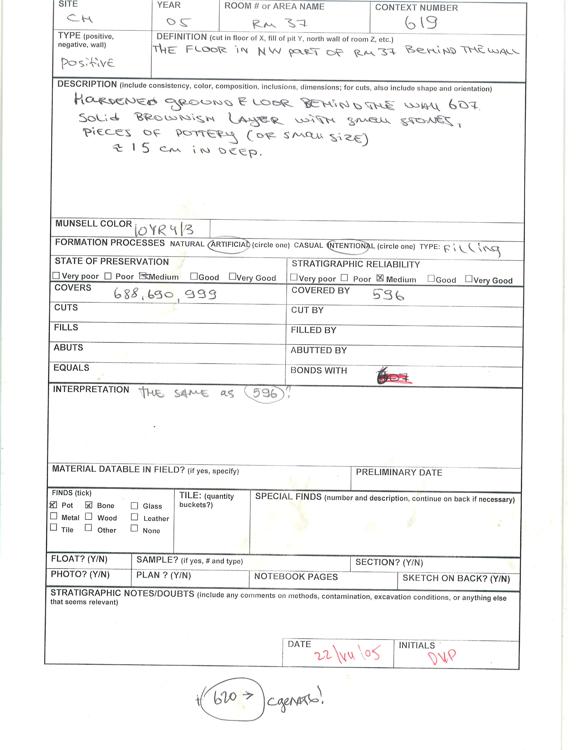 SITE YEAR ROOM # or AREA NAME CONTEXT NUMBER
CH 05 RM 37 619
TYPE (positive, negative, wall) DEFINITION (cut in floor of X, fill of pit Y, north wall of room Z, etc.)
Positive THE FLOOR IN NW PART OF RM 37 BEHIND THE WALL
DESCRIPTION (include consistency, color, composition, inclusions, dimensions; for cuts, also include shape and orientation)
HARDENED GROUND FLOOR BEHIND THE WALL 607
SOLID BROWNISH LAYER WITH SMALL STONES,
PIECES OF POTTERY (OF SMALL SIZE)
± 15 CM IN DEEP.
MUNSELL COLOR 10YR4/3
FORMATION PROCESSES NATURAL ARTIFICIAL (circle one) CASUAL INTENTIONAL (circle one) TYPE: Filling
STATE OF PRESERVATION STRATIGRAPHIC RELIABILITY
☐Very poor ☐ Poor ☒Medium ☐Good ☐Very Good ☐Very poor ☐ Poor ☒ Medium ☐Good ☐Very Good
COVERS 688, 690, 999 COVERED BY 596
CUTS CUT BY
FILLS FILLED BY
ABUTS ABUTTED BY
EQUALS BONDS WITH
INTERPRETATION THE SAME AS 596?
MATERIAL DATABLE IN FIELD? (if yes, specify) PRELIMINARY DATE
FINDS (tick) TILE: (quantity buckets?) SPECIAL FINDS (number and description, continue on back if necessary)
☒ Pot ☒ Bone ☐ Glass
☐ Metal ☐ Wood ☐ Leather
☐ Tile ☐ Other ☐ None
FLOAT? (Y/N) SAMPLE? (if yes, # and type) SECTION? (Y/N)
PHOTO? (Y/N) PLAN ? (Y/N) NOTEBOOK PAGES SKETCH ON BACK? (Y/N)
STRATIGRAPHIC NOTES/DOUBTS (include any comments on methods, contamination, excavation conditions, or anything else
that seems relevant)
DATE INITIALS
22/VII/05 DVP
620 →